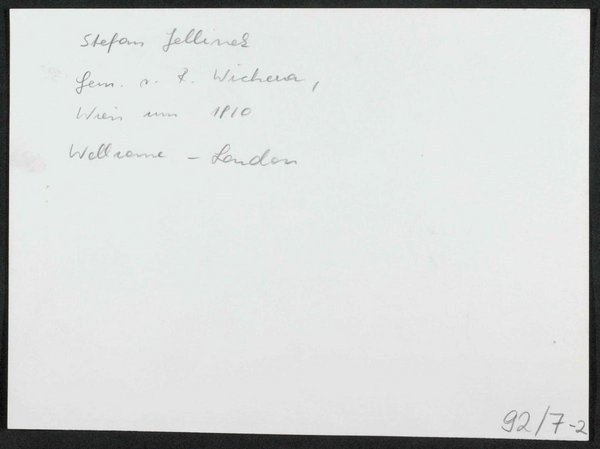 Stefan Jellinek
Gem. v. R. Wichera,
Wien um 1910
Wellcome - London
92/7-2